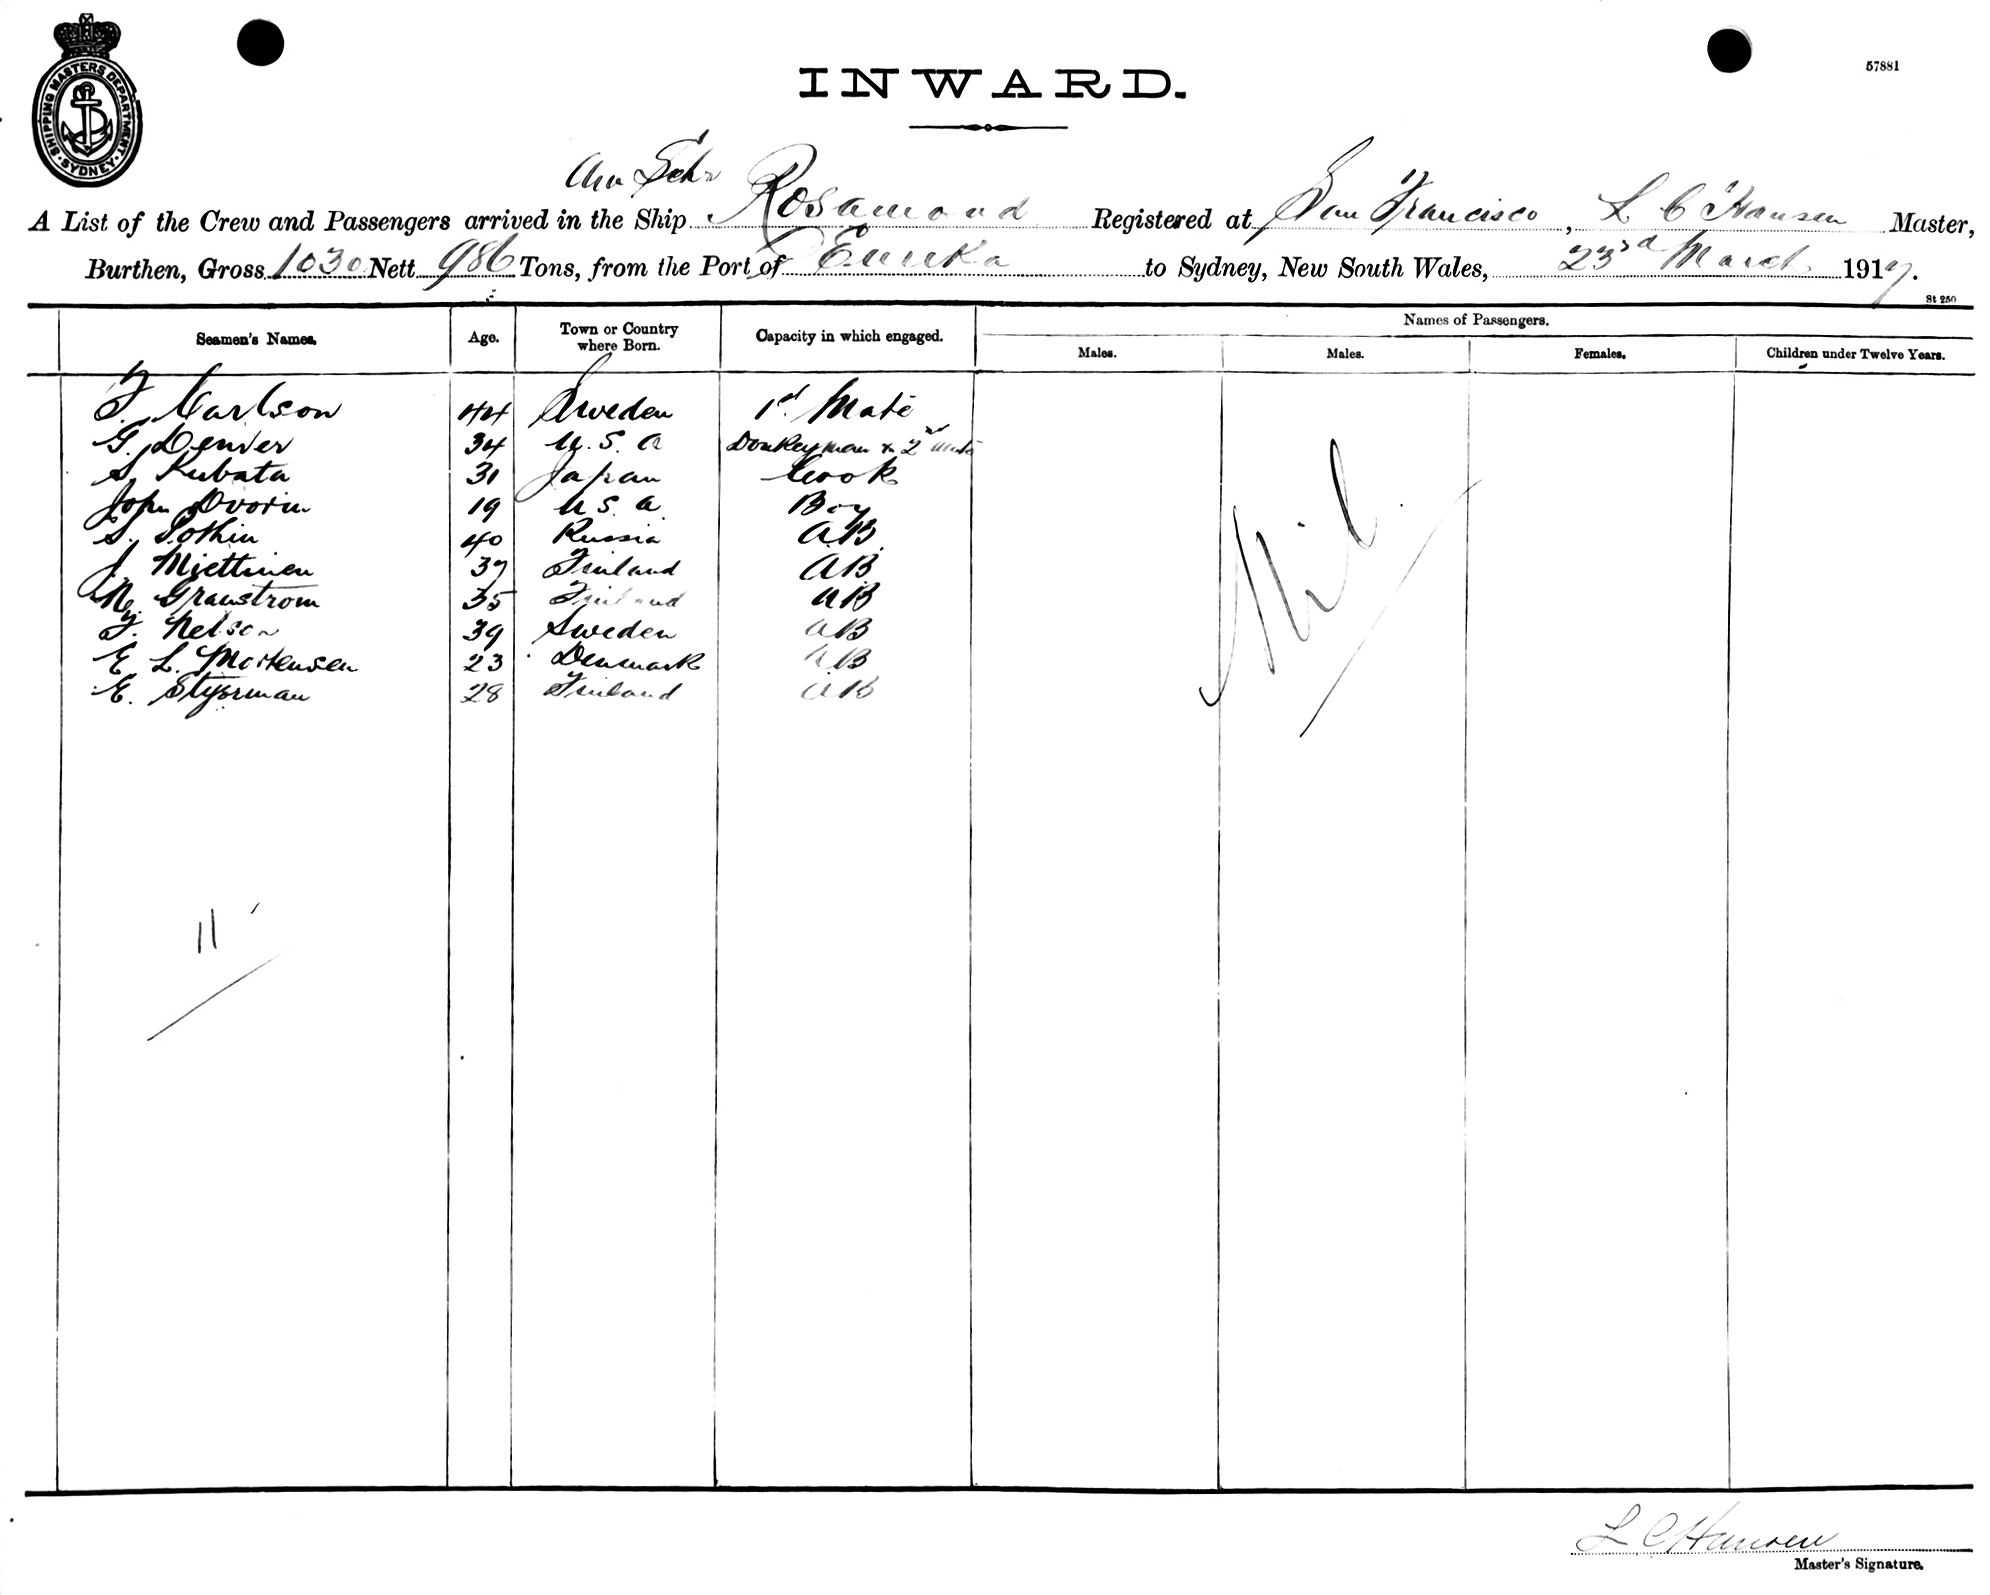 SHIPPING MASTERS DEPARTMENT · SYDNEY ·
57881
INWARD.
Schr
A List of the Crew and Passengers arrived in the Ship Rosamond Registered at San Francisco, L C Hansen Master,
Burthen, Gross 1030 Nett 986 Tons, from the Port of Eureka to Sydney, New South Wales, 23rd March 1917.
St 250
Seamen's Names. Age. Town or Country where Born. Capacity in which engaged. Names of Passengers.
Males. Males. Females. Children under Twelve Years.
F. Carlson 44 Sweden 1st Mate
G. Denver 34 U.S.A Donkeyman & 2nd Mate
S Kubata 31 Japan Cook
John Dvorin 19 U.S.A Boy
S. Pothin 40 Russia A.B.
J. Miettinen 37 Finland AB
N. Granstrom 35 Finland AB
F. Nelson 39 Sweden AB
E L. Mortensen 23 Denmark AB
E. Styorman 28 Finland AB
Nil.
11
L C Hansen
Master's Signature.